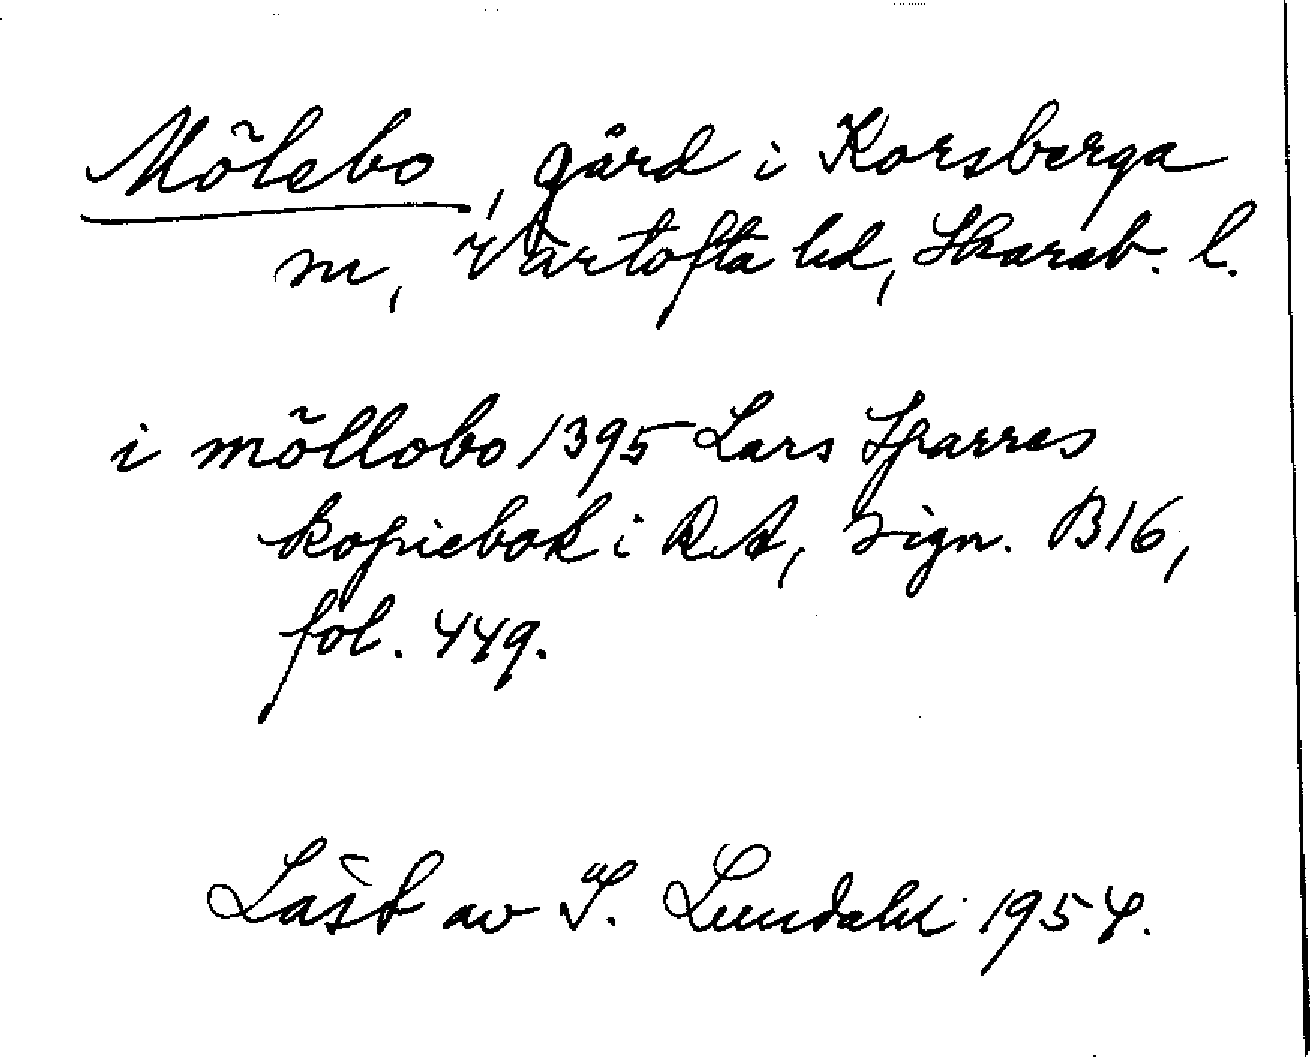 Mõlebo, gård i Korsberga
sn, Vartofta hd, Skarab. l.
i mõllobo 1395 Lars Sparres
kopiebok i RA, sign. B16,
fol. 449.
Läst av I. Lundahl 1954.